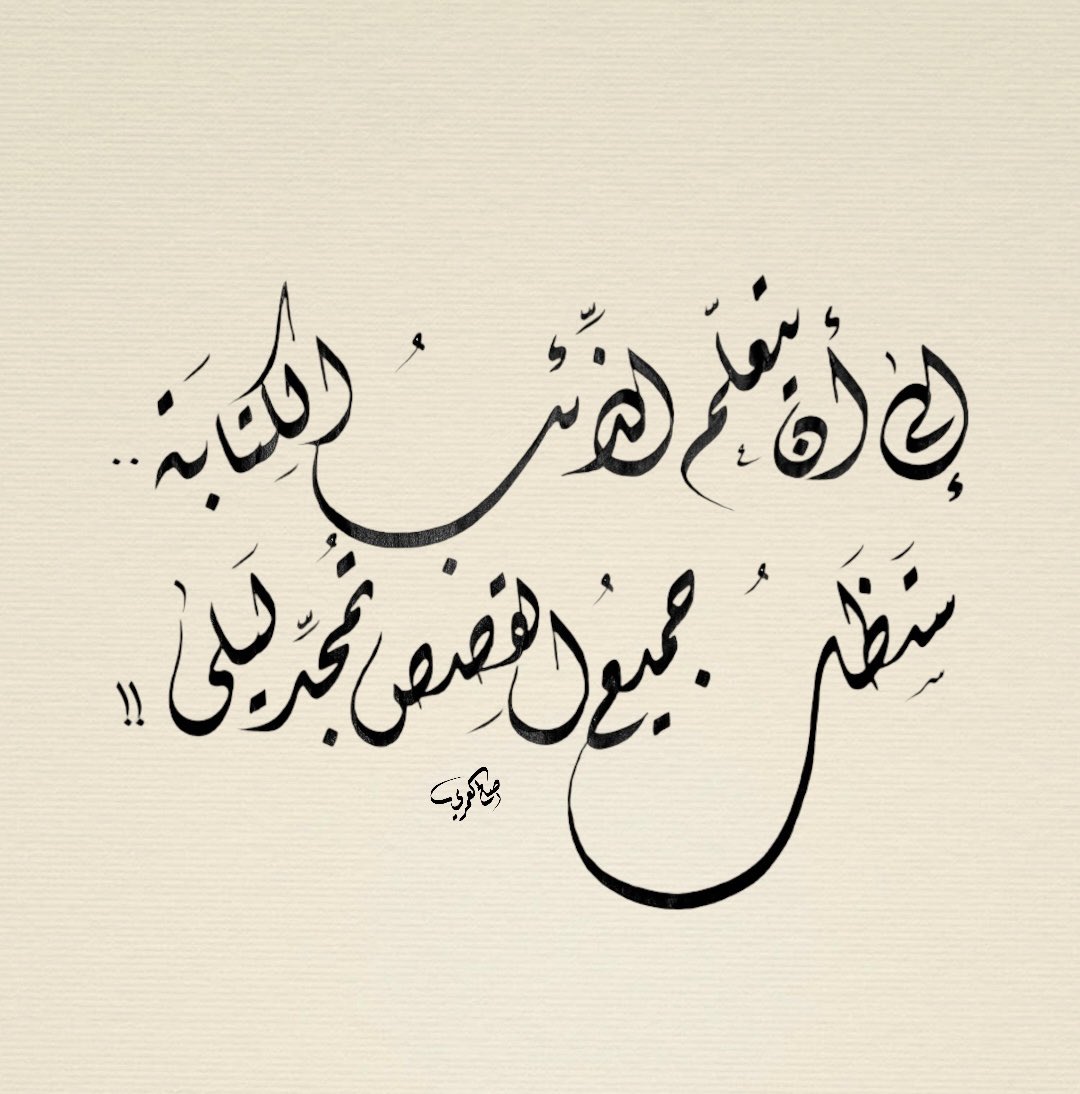 إلى أن يتعلّم الذّئبُ الكتابَة ..
ستَظَلُّ جميعُ القِصص تُمجِّد ليَلى !!